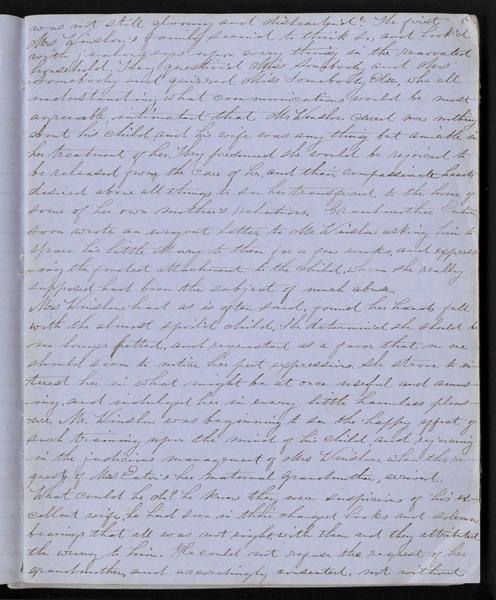 was not still gloomy and disheartend? The first 5
Mrs Winslow's family seem'd to think so, and look'd
with upon every thing in the renovated
household. They question'd Miss Somebody and Mrs
Somebody and quizzed Miss Somebody Else, who all
understanding what communications would be most
agreeable, intimated that Mr Winslow cared now nothing
about his child and his wife was any thing but amiable in
her treatment of her. They presumed she would be rejoiced to
be released from the care of her and their compassionate hearts
desired above all things to see her transferred to the home of
some of her own mother's relatives. Grandmother Eaton
soon wrote an urgent letter to Mr Winslow asking him to
spare his little Mary to them for a few weeks, and express
ing the fondest attachment to the child, whom she really
supposed had been the subject of much abuse.
Mrs Winslow had as is often said, found her hands full
with the almost spoil'd child. She determin'd she should be
no longer petted, and requested as a favor that no one
should seem to notice her pert expressions. She strove to in
terest her in what might be at once useful and amus
ing, and indulged her in every little harmless pleas
ure. Mr. Winslow was beginning to see the happy effect of
such training upon the mind of his child and rejoicing
in the judicious management of Mrs Winslow, when the re-
quest of Mrs Eaton her maternal grandmother, arrived.
What could he do? he knew they were suspicious of his ex
cellent wife, he had seen in their changed looks and solemn
bearings that all was not right with them and they attributed
the wrong to him. He could not refuse the request of her
grandmother, and accordingly consented, not without